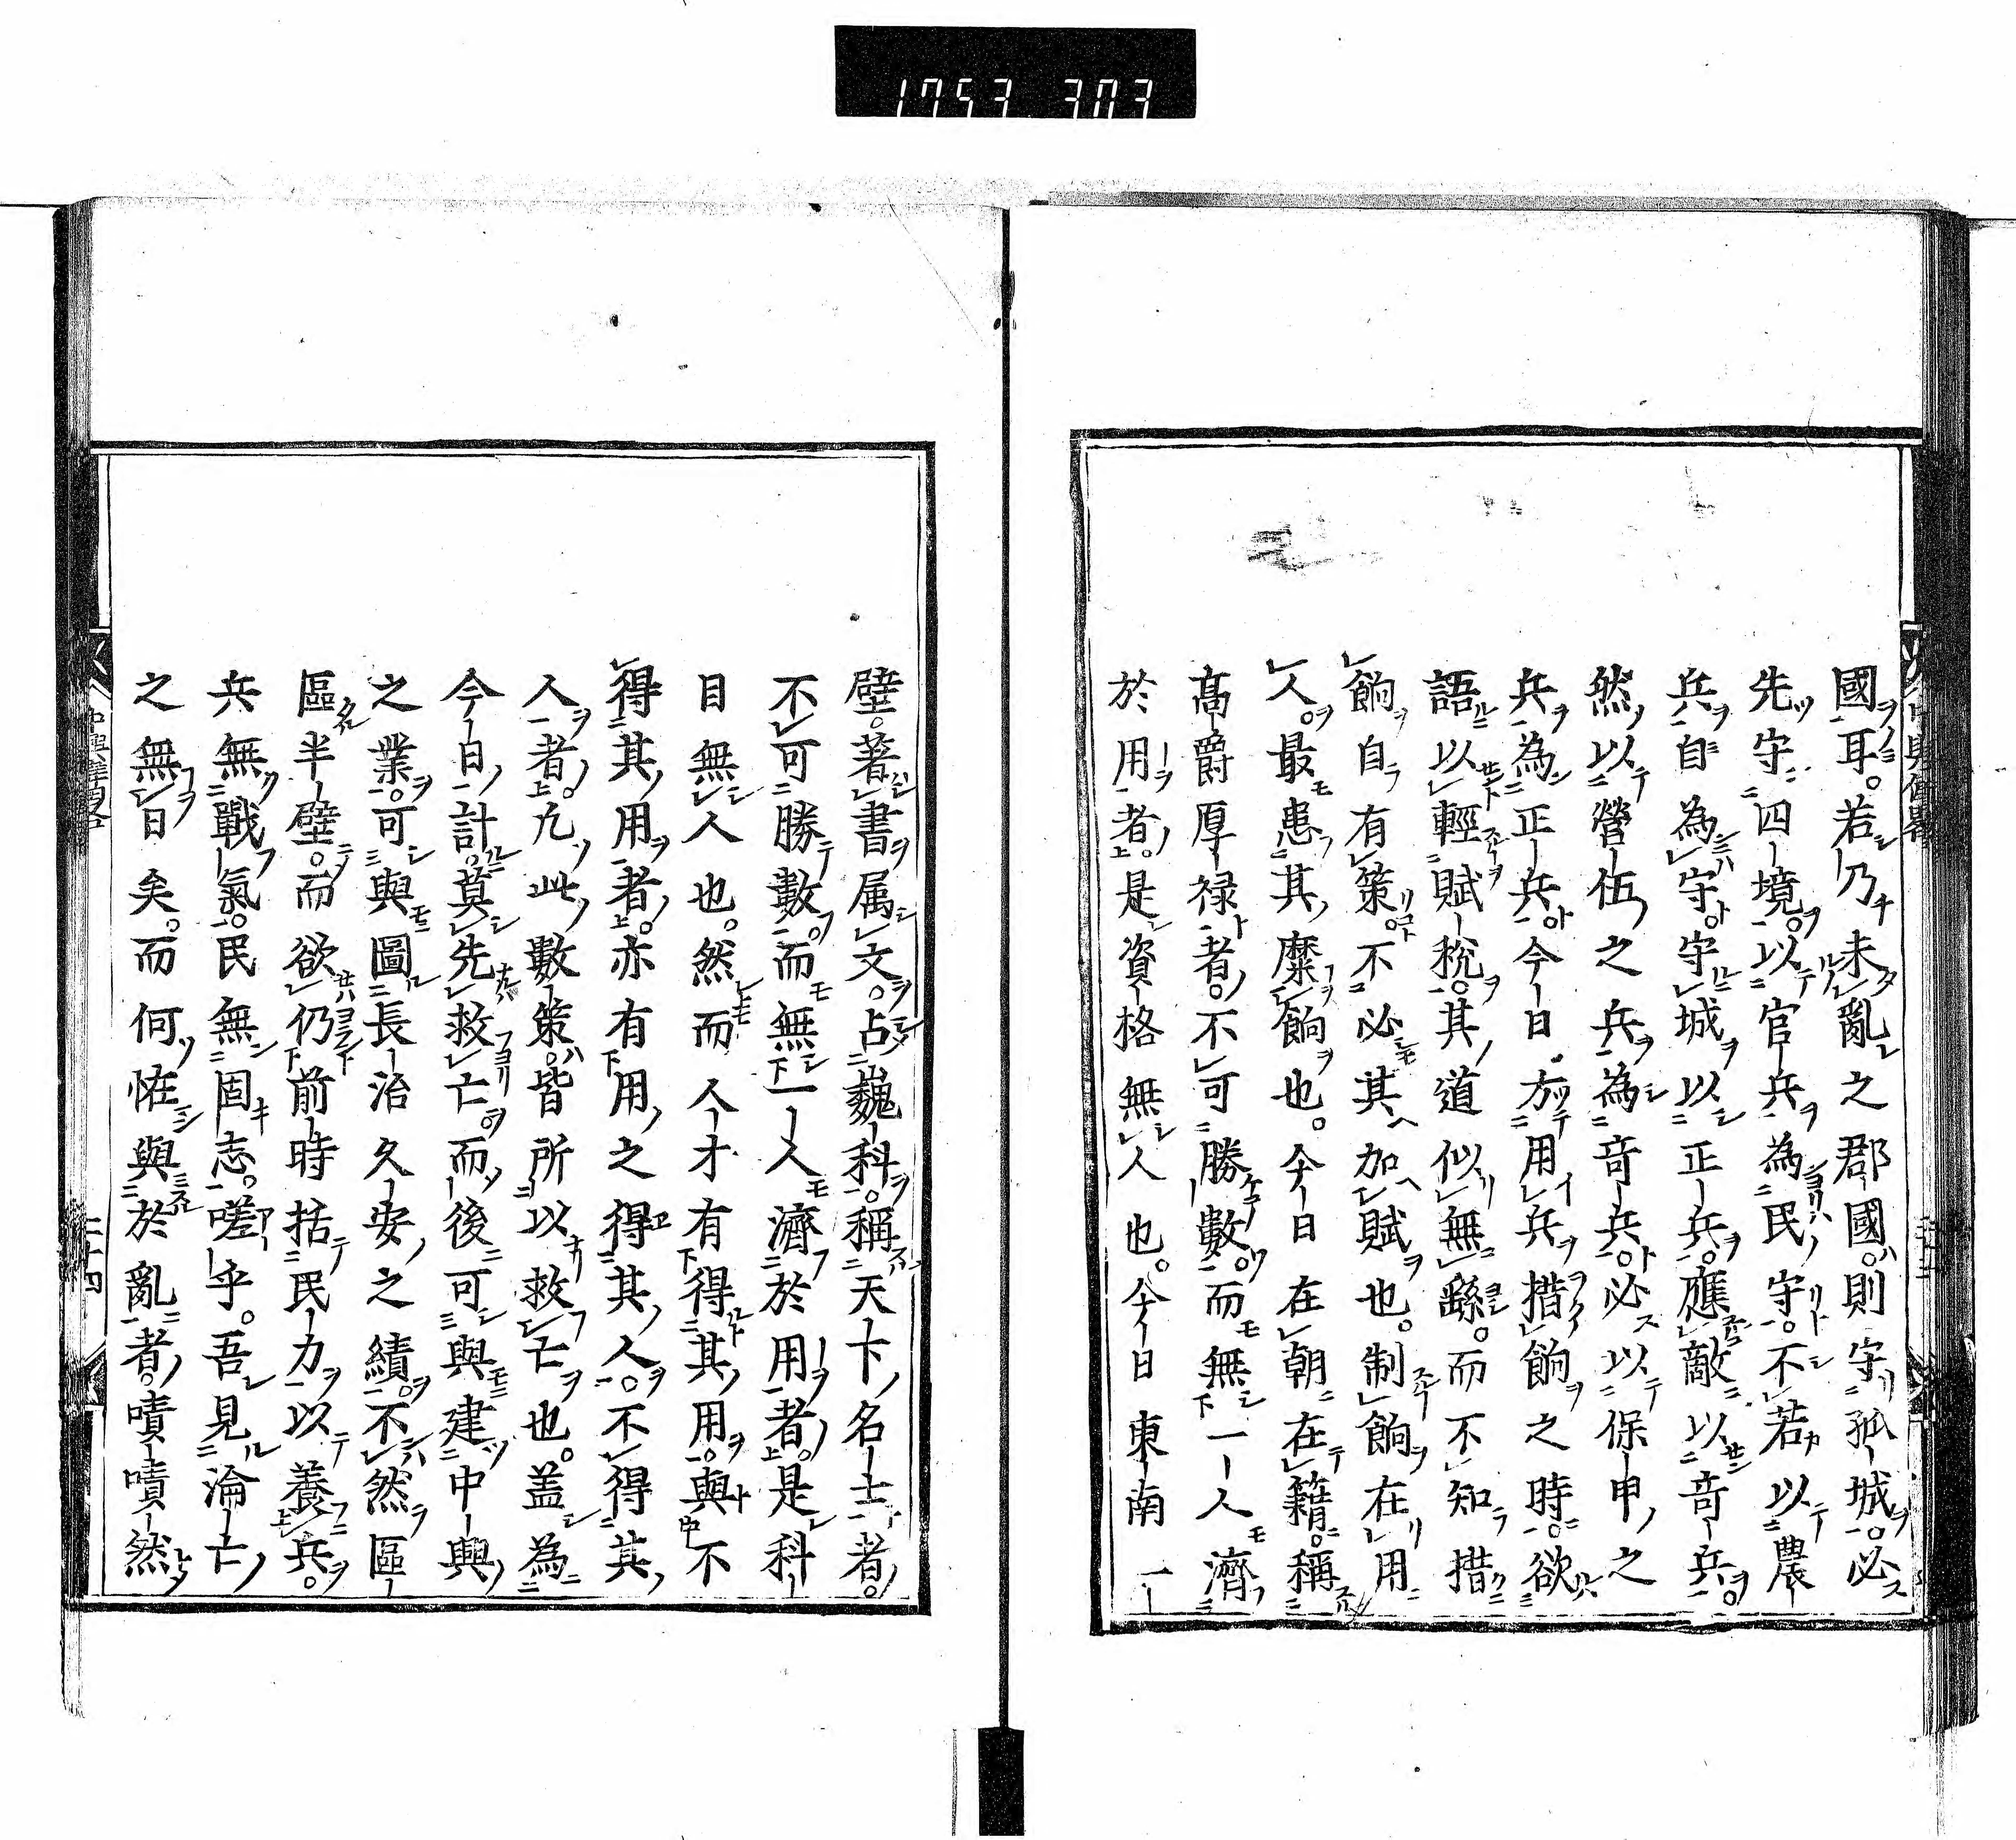 1753 303
國耳。若乃未亂之郡國。則守孤城。必
先守四境。以官兵為民守。不若以農
兵自為守。守城以正兵。應敵以竒兵。
然以營伍之兵為竒兵。必以保甲之
兵為正兵。今日方用兵措餉之時。欲
語以輕賦稅。其道似無繇。而不知措
餉自有策。不必其加賦也。制餉在用
人。最患其糜餉也。今日在朝在籍。稱
高爵厚祿者。不可勝數。而無一人濟
於用者。是資格無人也。今日東南一
壁。著書属文。占巍科。稱天下名士者。
不可勝數。而無一人濟於用者。是科
目無人也。然而人才有得其用。與不
得其用者。亦有用之得其人。不得其
人者。凢此數策。皆所以救亡也。盖為
今日計。莫先救亡。而後可與建中興
之業。可與圖長治久安之績。不然區
區半壁。而欲仍前時括民力以養兵。
兵無戰氣。民無固志。嗟乎。吾見淪亡
之無日矣。而何恠與於亂者。嘖嘖然
中興偉畧
二十四